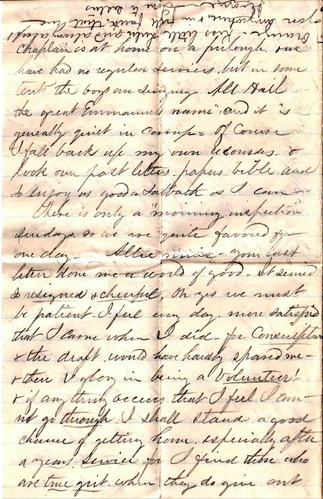 chaplain is at home on a furlough, we
have had no regular services, but in some
tents the boys are singing "All Hail
the great Emmanuel's name", and it is
generally quiet in camp. Of Course
I fall back up my own recourses. &
look our past letters, papers, bible and
& enjoy as good a Sabbath as I can
There is only a morning inspection
Sundays so we are quite favored for
one day. Allie mine - your last
letter done me a world of good. It seemed
so resigned & cheerful, Oh yes we must
be patient. I feel every day, more satisfied
that I came when I did - for Conscription
& the draft, would have hardly spared me -
& then I glory in being a Volunteer!
& if anything occurs that I feel I can-
not go through I shall stand a good
chance of getting home, especially after
a years service for I find those who
are true grit when they do give out